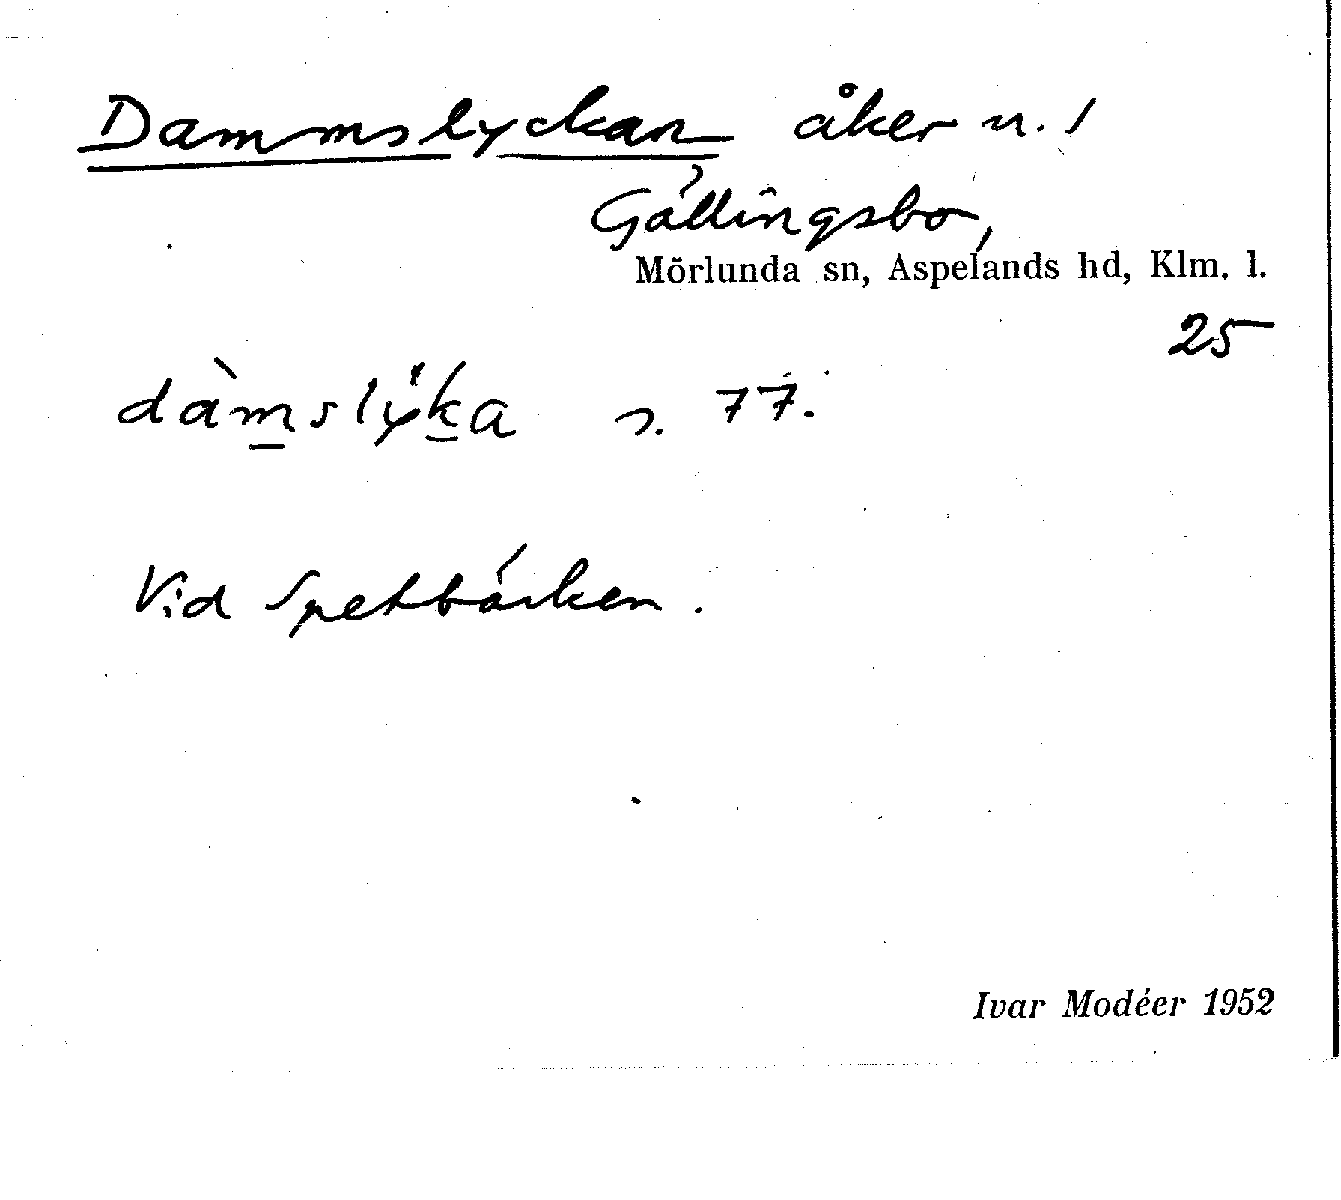 Dammslyckan åker n. 1
Gällingsbo,
Mörlunda sn, Aspelands hd, Klm. l.
25
dàm̲slỳk̲a s. 77.
Vid Spetbäcken.
Ivar Modéer 1952